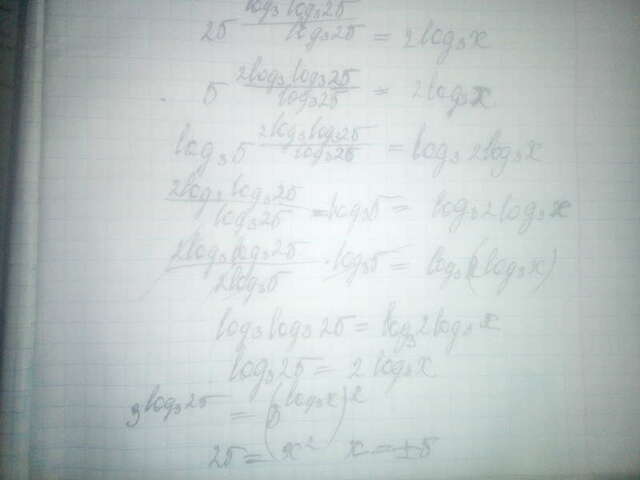 25^{\frac{log_3 log_3 25}{log_3 25}} = 2log_3 x
5^{\frac{2log_3 log_3 25}{log_3 25}} = 2log_3 x
log_3 5^{\frac{2log_3 log_3 25}{log_3 25}} = log_3 2log_3 x
\frac{2log_3 log_3 25}{log_3 25} · log_3 5 = log_3 2log_3 x
\frac{2log_3 log_3 25}{2log_3 5} · log_3 5 = log_3 2(log_3 x)
log_3 log_3 25 = log_3 2log_3 x
log_3 25 = 2 log_3 x
3^{log_3 25} = (3^{log_3 x})^2
25 = x^2 x = ±5